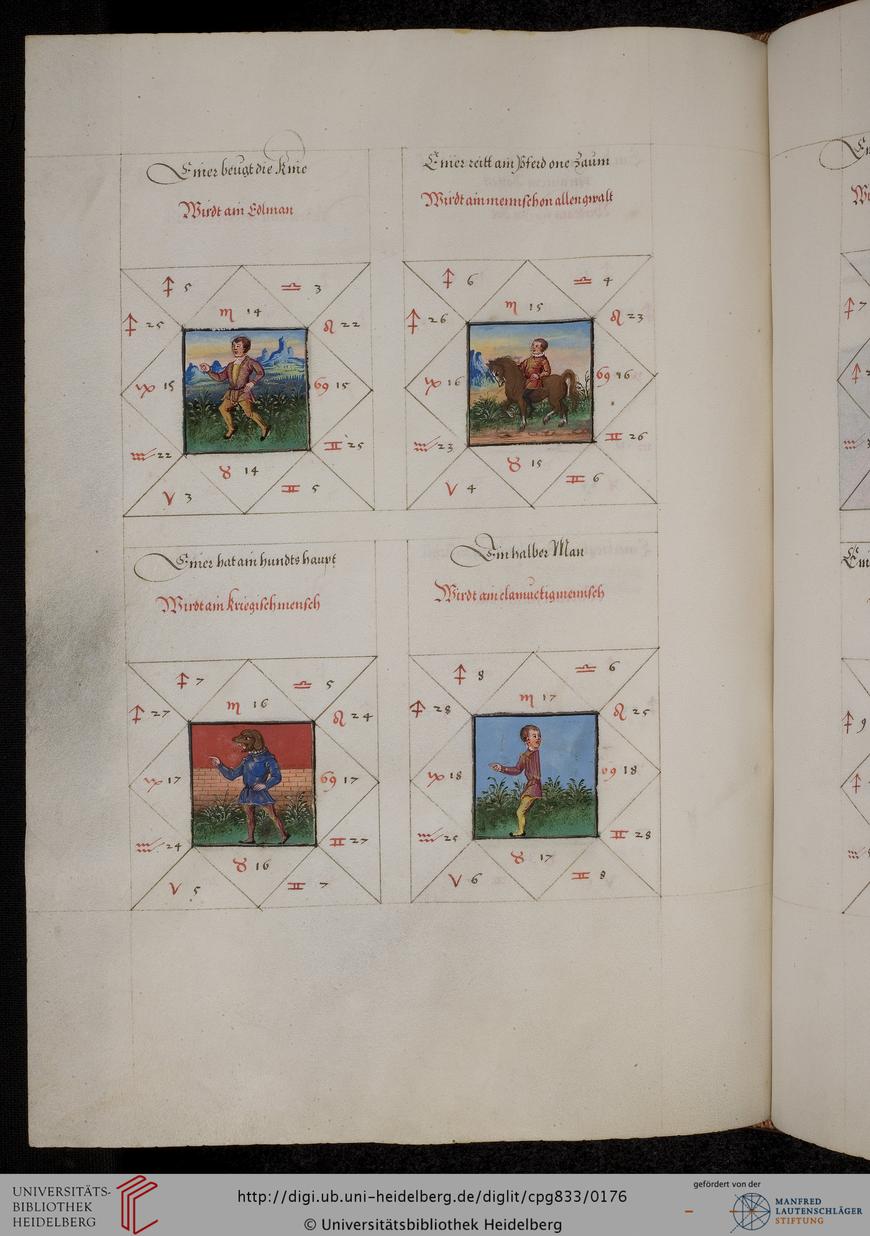 Einer beugt die Knie
Wirdt ain Edlman
♐ 5
♎ 3
♐ 25
♏ 14
♌ 22
♑ 15
♋ 15
♒ 22
♊ 25
♉ 14
♈ 3
♊ 5
Einer reitt ain Pferd one Zaum
Wirdt ain mennsch on allen gwalt
♐ 6
♎ 4
♐ 26
♏ 15
♌ 23
♑ 16
♋ 16
♒ 23
♊ 26
♉ 15
♈ 4
♊ 6
Einer hat ain hundts haupt
Wirdt ain kriegisch mensch
♐ 7
♎ 5
♐ 27
♏ 16
♌ 24
♑ 17
♋ 17
♒ 24
♊ 27
♉ 16
♈ 5
♊ 7
Ein halber Man
Wirdt ain mennsch
♐ 8
♎ 6
♐ 28
♏ 17
♌ 25
♑ 18
♋ 18
♒ 25
♊ 28
♉ 17
♈ 6
♊ 8
♐ 7
♐ 9
UNIVERSITÄTS-
BIBLIOTHEK
HEIDELBERG
http://digi.ub.uni-heidelberg.de/diglit/cpg833/0176
© Universitätsbibliothek Heidelberg
gefördert von der
MANFRED
LAUTENSCHLÄGER
STIFTUNG